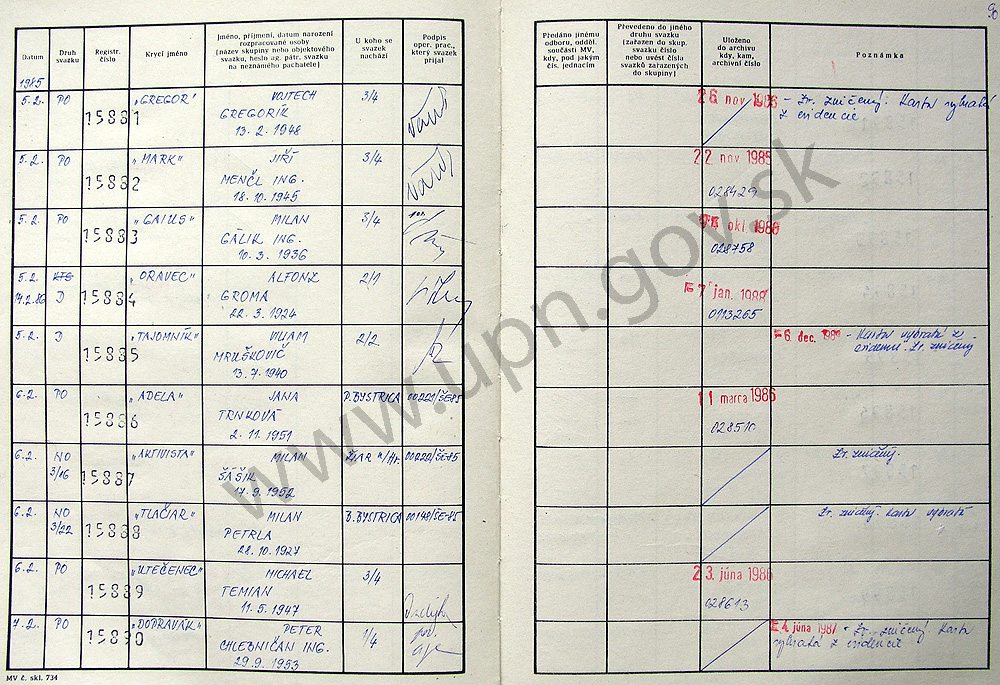 90
Datum
Druh svazku
Registr. číslo
Krycí jméno
Jméno, příjmení, datum narození
rozpracované osoby
(název skupiny nebo objektového
svazku, heslo ag. pátr. svazku
na neznámého pachatele)
U koho se
svazek
nachází
Podpis
oper. prac.,
který svazek
přijal
Předáno jinému
odboru, odděl.
součásti MV,
kdy, pod jakým
čís. jednacím
Převedeno do jiného
druhu svazku
(zařazen do skup.
svazku číslo
nebo uvést čísla
svazků zařazených
do skupiny)
Uloženo
do archivu
kdy, kam,
archivní číslo
Poznámka
1985
5.2. PO 15881 „GREGOR" VOJTECH 3/4
GREGORÍK
13. 2. 1948
26 nov 1986 - Zr. zničený. Karta vybratá
z evidencie
5.2. PO 15882 „MARK" JIŘÍ 3/4
MENČL ING.
18. 10. 1945
22 nov 1985
028429
5.2. PO 15883 „GAIUS" MILAN 3/4
GÁLIK ING.
10. 3. 1936
okt. 1986
028758
5.2. KTS 15884 „ORAVEC" ALFONZ 2/1
14.2.86 D GROMA
22. 3. 1924
7 jan. 1988
0113265
5.2. D 15885 „TAJOMNÍK" VILIAM 2/2
MRUŠKOVIČ
13. 7. 1940
6 dec. - Karta vybratá z
evidencie. Zr. zničený
6.2. PO 15886 „ADELA" JANA P. BYSTRICA 00221/ŠE-85
TRNKOVÁ
2. 11. 1951
11 marca 1986
028510
6.2. NO 15887 „AKTIVISTA" MILAN ŽIAR n/Hr. 00220/ŠE-85
3/16 ŠÁŠIK
17. 9. 1952
Zr. zničený.
6.2. NO 15888 „TLAČIAR" MILAN B. BYSTRICA 00148/ŠE-85
3/22 PETRLA
28. 10. 1927
Zr. zničený. Karta vybratá
6.2. PO 15889 „UTEČENEC" MICHAEL 3/4
TEMIAN
11. 5. 1947
23. júna 1986
028613
7.2. PO 15890 „DOPRAVÁK" PETER 1/4
CHLEBNIČAN ING.
29. 9. 1953
4 júna 1987 - Zr. zničený. Karta
vybratá z evidencie
MV č. skl. 734
www.upn.gov.sk